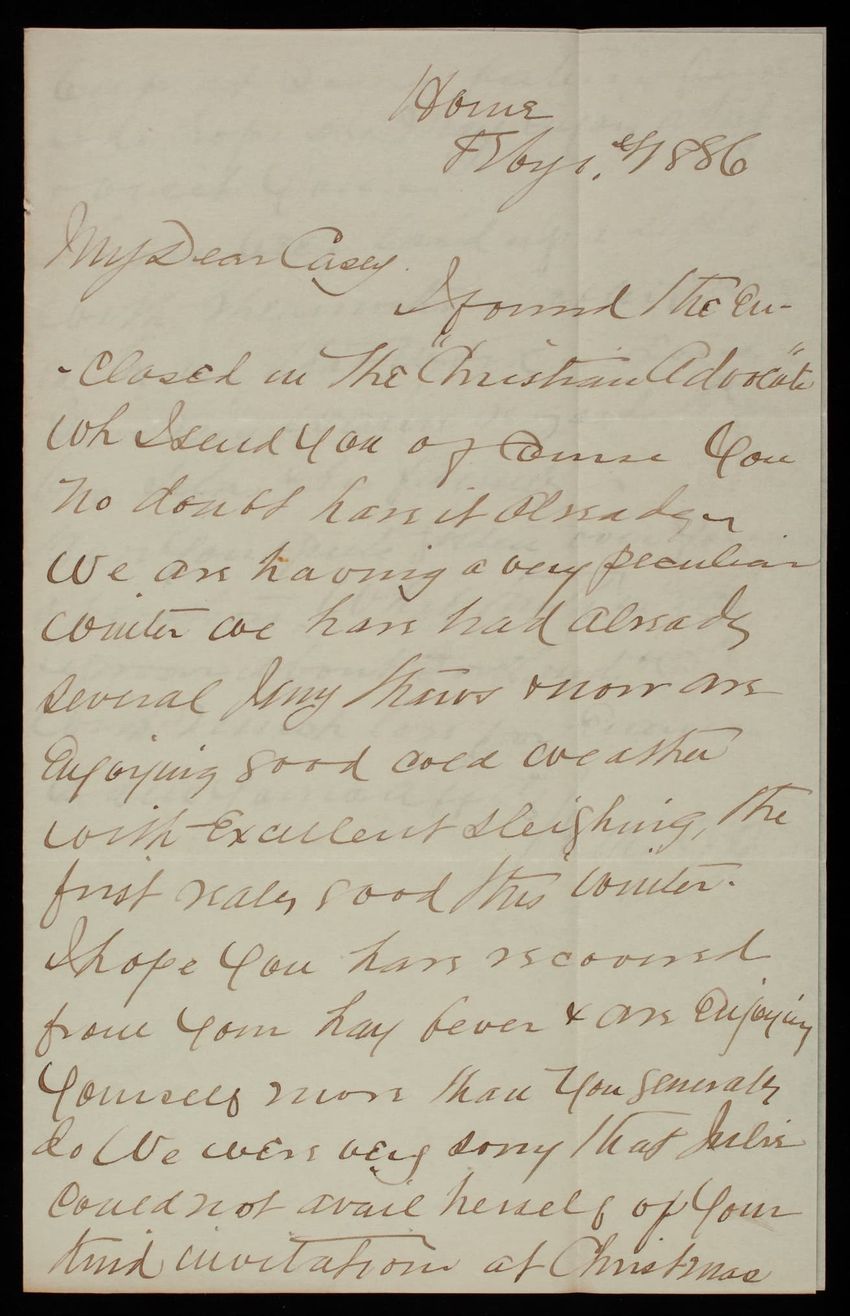 Home
Feby 1st, 1886
My Dear Casey.
I found the en-
-closed in the "Christian Advocate"
wh I send you of course you
no doubt have it already
We are having a very peculiar
winter we have had already
several Jany thaws & now are
Enjoying good cold weather
with Excellent sleighing, the
first realy good this winter.
I hope you have recovered
from your hay fever & are Enjoying
yourself more than you generally
do We were very sorry that Julie
could not avail herself of your
kind invitation at Christmas